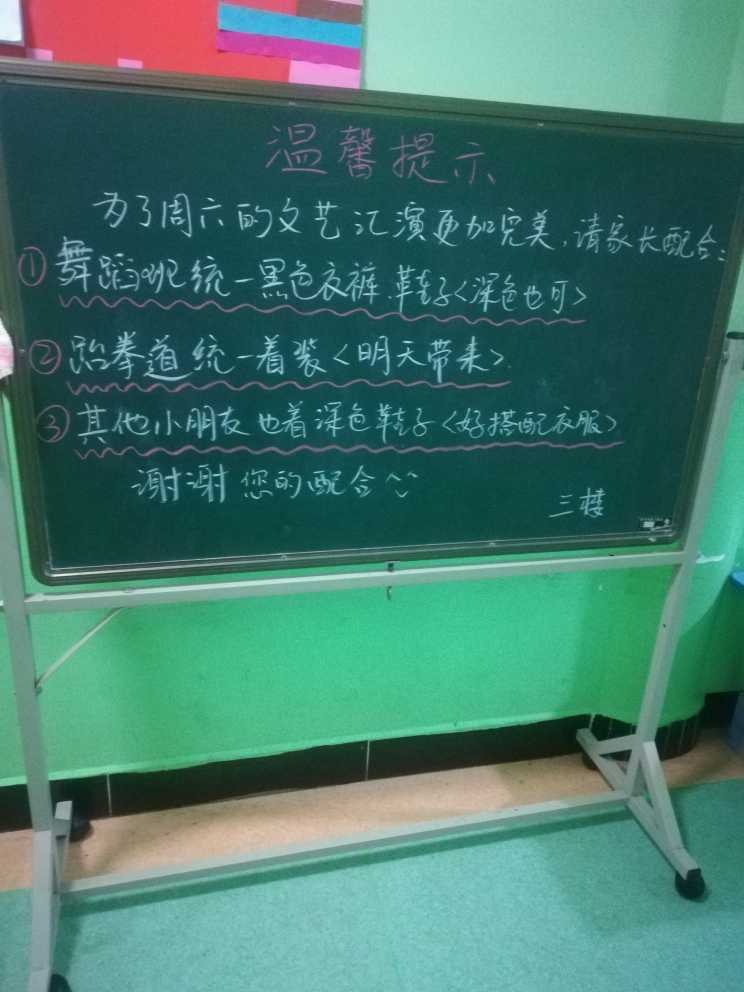 温馨提示
为了周六的文艺汇演更加完美,请家长配合:
①舞蹈班统一黑色衣裤、鞋子<深色也可>
②跆拳道统一着装<明天带来>.
③其他小朋友也着深色鞋子<好搭配衣服>
谢谢您的配合
三楼